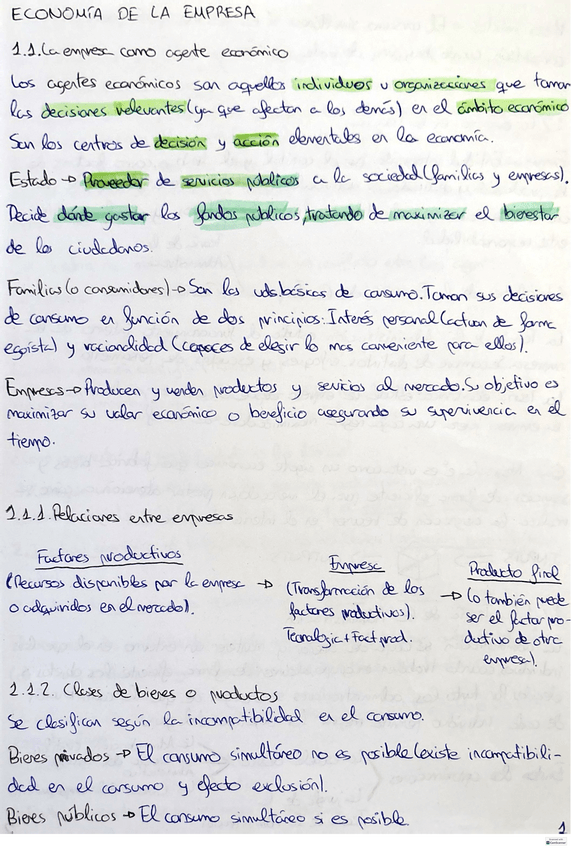 ECONOMÍA DE LA EMPRESA
1.1. La empresa como agente económico
Los agentes económicos son aquellos individuos u organizaciones que toman
las decisiones relevantes (ya que afectan a los demás) en el ámbito económico
Son los centros de decisión y acción elementales en la economía.
Estado → Proveedor de servicios públicos a la sociedad (familias y empresas).
Decide dónde gastar los fondos públicos, tratando de maximizar el bienestar
de los ciudadanos.
Familias (o consumidores) → Son las uds. básicas de consumo. Toman sus decisiones
de consumo en función de dos principios: Interés personal (actuan de forma
egoísta) y racionalidad (capaces de elegir lo mas conveniente para ellos).
Empresas → Producen y venden productos y servicios al mercado. Su objetivo es
maximizar su valor económico o beneficio asegurando su supervivencia en el
tiempo.
1.1.1. Relaciones entre empresas
Factores productivos
(Recursos disponibles por la empresa →
o adquiridos en el mercado).
Empresa
(Transformación de los
factores productivos).
Tecnología + Fact. prod.
Producto final
→ (o también puede
ser el factor pro-
ductivo de otra
empresa).
1.1.2. Clases de bienes o productos
Se clasifican según la incompatibilidad en el consumo.
Bienes privados → El consumo simultáneo no es posible (existe incompatibili-
dad en el consumo y efecto exclusión).
Bienes públicos → El consumo simultáneo si es posible.
1